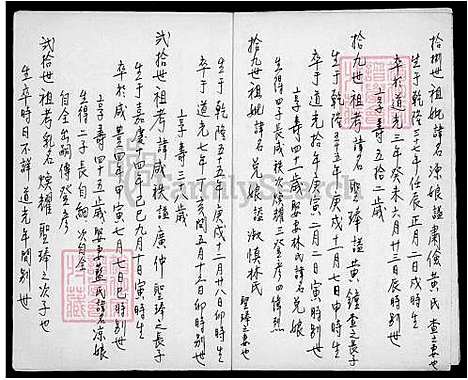 拾捌世祖妣諱名涼娘謚肅儉黃氏 查之妻也
生于乾隆三十七年壬辰正月二日戌時生
卒於道光三年癸未六月廿三日辰時別世
享壽五拾二歲
拾九世祖考諱名聖瑋謚黃鐘 查之長子
生于乾隆五十五年庚戌十一月七日申時生
卒于道光拾年庚寅二月二日寅時別世
享壽四十一歲 娶妻林氏諱名兌娘
生得四子 長咸秩 次煥耀 三登彥 四偉烈
拾九世祖妣諱名兌娘謚淑慎林氏 聖瑋之妻也
生于乾隆五十五年庚戌十二月廿八日卯時生
卒于道光七年丁亥閏五月十六日卯時別世
享壽三十八歲
貳拾世祖考諱咸秩謚廣仲 聖瑋之長子
生于嘉慶十四年己巳九月十日寅時生
卒於咸豐四年甲寅七月七日巳時別世
享壽四十五歲 娶妻藍氏諱名涼娘
生得二子 長自 次自全
自全出嗣傳登彥
貳拾世祖考乳名煥耀 聖瑋之次子也
生卒時日不詳 道光年間別世
FamilySearch